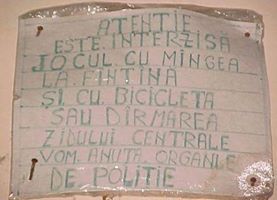 ATENTIE
ESTE INTERZISA
JOCUL CU MINGEA
LA FINTINA
ŞI CU BICICLETA
SAU DÎRMAREA
ZIDULUI CENTRALE
VOM ANUTA ORGANLE
DE POLITIE